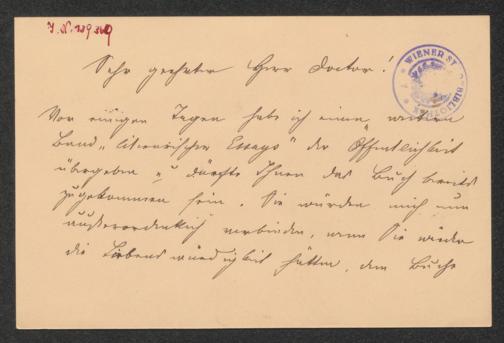 J. N. 129349
WIENER ST BIBLIOTHEK
Sehr geehrter Herr Doctor!
Vor einigen Tagen habe ich einen weiteren
Band „Literarischer Essays" der Öffentlichkeit
übergeben u dürfte Ihnen das Buch bereits
zugekommen sein. Sie würden mich nun
außerordentlich verbinden, wenn Sie wieder
die Liebenswürdigkeit hätten, dem Buche